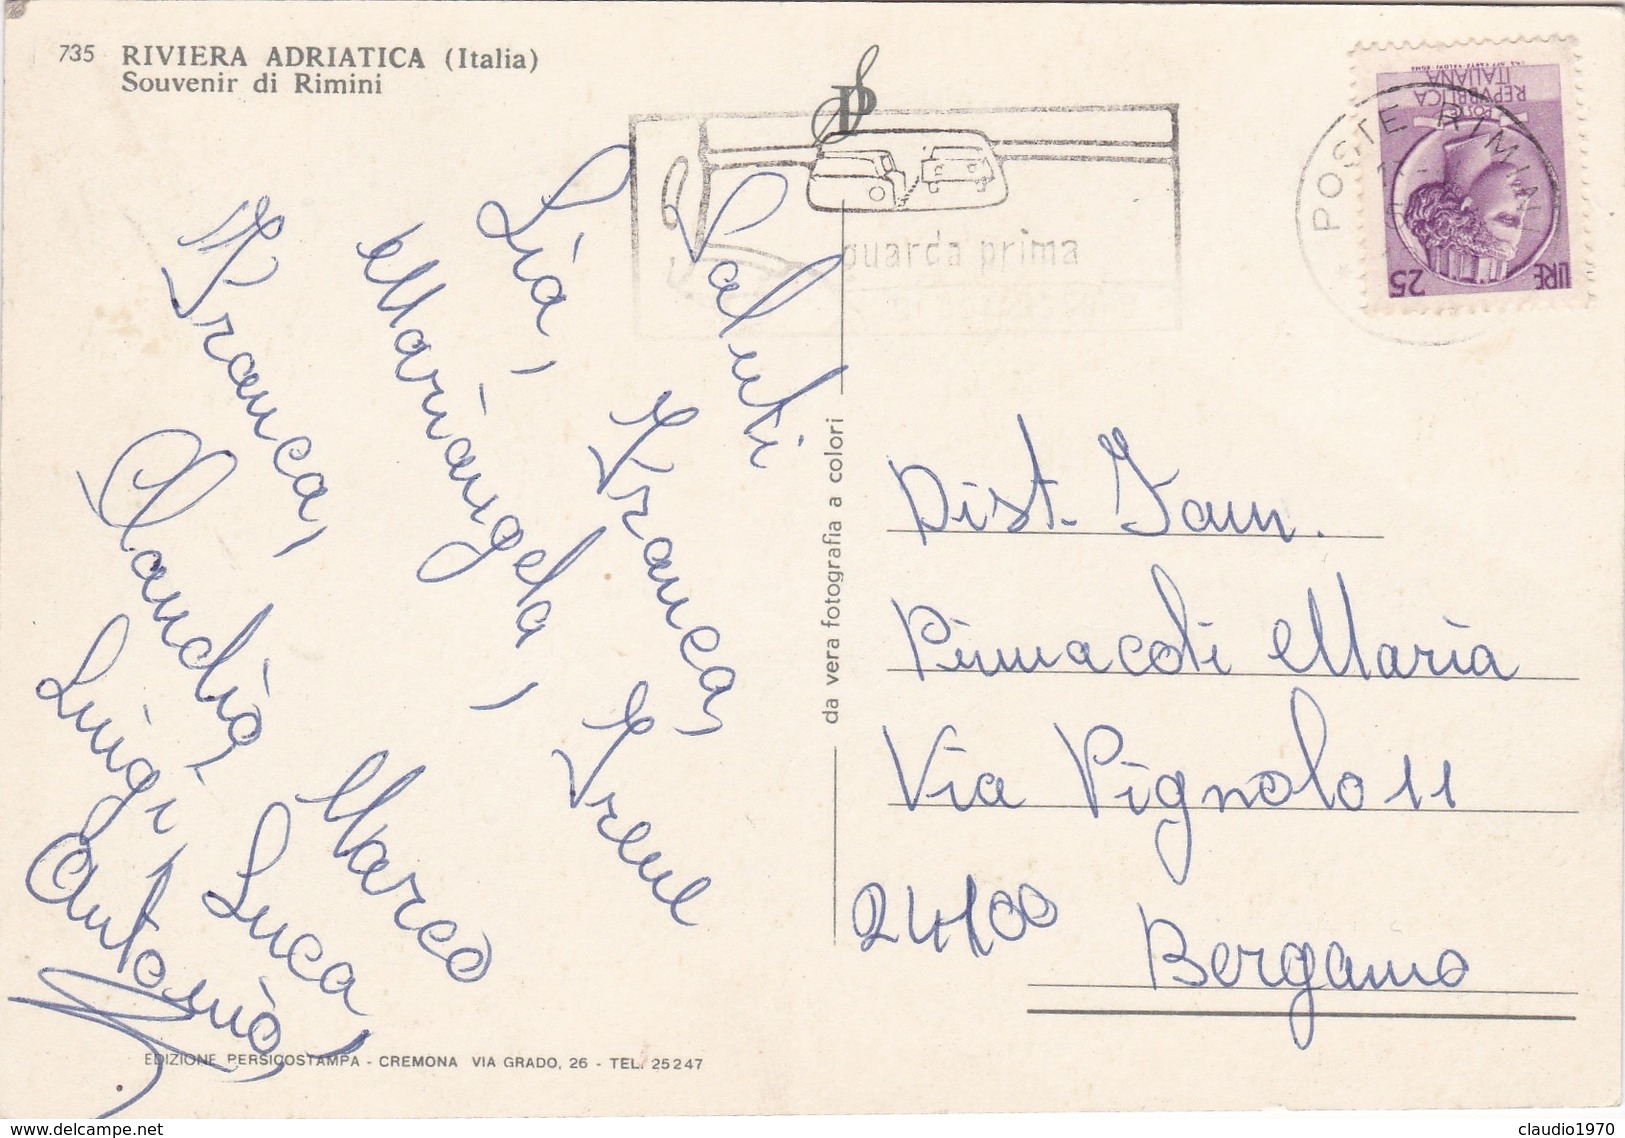 735 RIVIERA ADRIATICA (Italia)
Souvenir di Rimini
Saluti
Lia, Franca,
Mariangela, Irene
Franca, Marco
Claudio, Luca,
Luigi,
Antonio,
EDIZIONE PERSICOSTAMPA - CREMONA VIA GRADO, 26 - TEL. 25247
da vera fotografia a colori
guarda prima
POSTE RIMINI
POSTE
REPVBBLICA
ITALIANA
LIRE 25
Dist. Fam.
Pinnacoli Maria
Via Pignolo 11
24100
Bergamo
delcampe.net
claudio1970